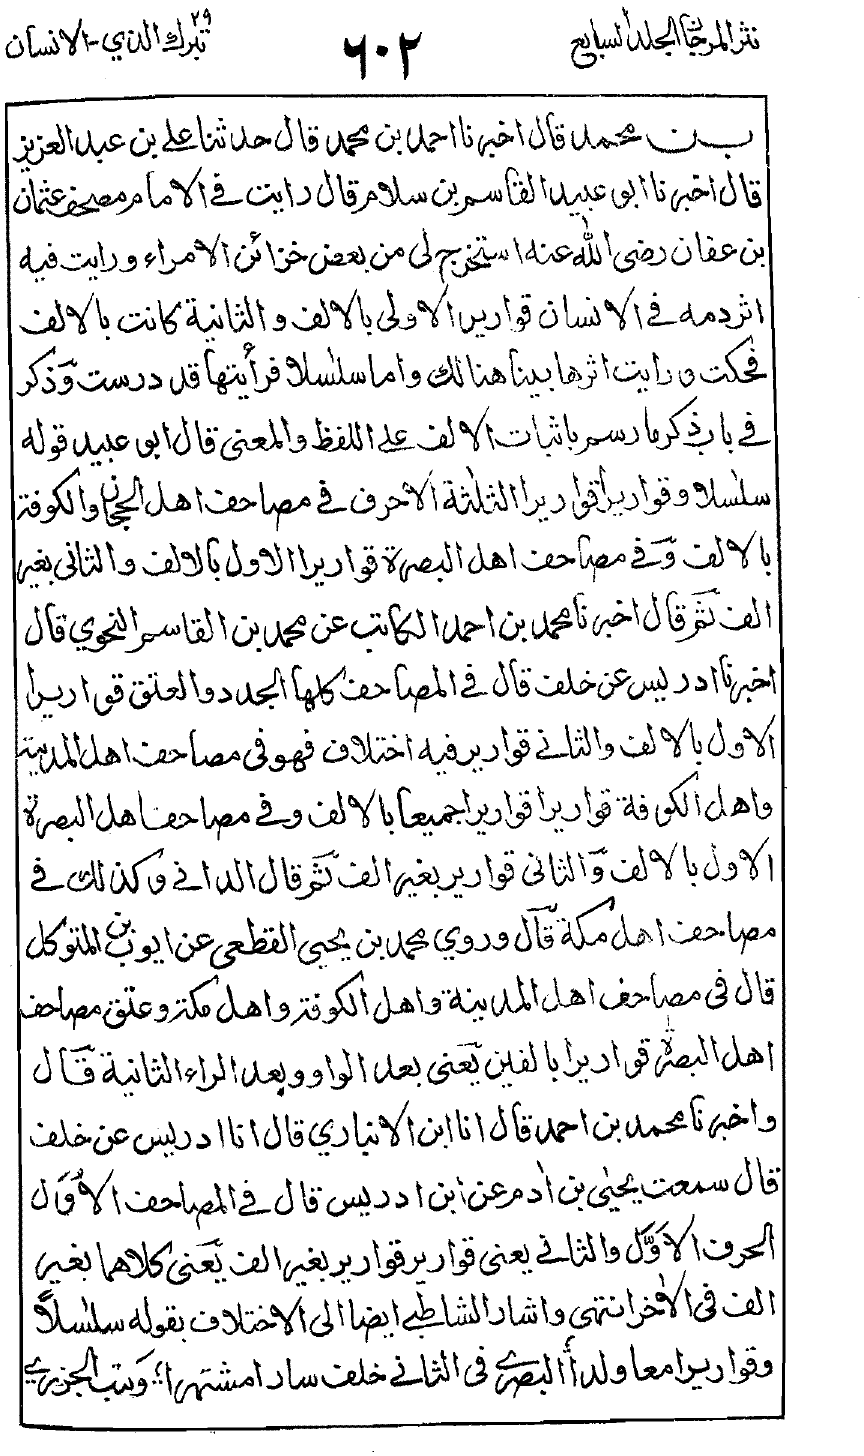 نثر المرجان الجلد السابع
٦٠٢
تبرك الذي ٢٩ - الانسان
بن محمد قال اخبرنا احمد بن محمد قال حدثنا علي بن عبد العزيز
قال اخبرنا ابو عبيد القاسم بن سلام قال رايت في الامام مصحف عثمان
بن عفان رضى الله عنه استخرج لى من بعض خزائن الامراء ورايت فيه
اثر دمه في الانسان قواريرا الاولى بالالف والثانية كانت بالالف
فحكت ورايت اثرها بينا هنالك واما سلٰسلا فرأيتها قد درست وذكر
في باب ذكر ما رسم باثبات الالف على اللفظ والمعنى قال ابو عبيد قوله
سلٰسلا وقواريرا قواريرا الثلٰثة الاحرف في مصاحف اهل الحجاز والكوفة
بالالف وفي مصاحف اهل البصرة قواريرا الاول بالالف والثانى بغير
الف ثم قال اخبرنا محمد بن احمد الكاتب عن محمد بن القاسم النحوي قال
اخبرنا ادريس عن خلف قال في المصاحف كلها الجدد والعتق قواريرا
الاول بالالف والثاني قوارير فيه اختلاف فهو في مصاحف اهل المدينة
واهل الكوفة قواريرا قواريرا جميعا بالالف وفي مصاحف اهل البصرة
الاول بالالف والثانى قوارير بغير الف ثم قال الداني وكذلك في
مصاحف اهل مكة قال وروي محمد بن يحيى القطعى عن ايوب بن المتوكل
قال فى مصاحف اهل المدينة واهل الكوفة واهل مكة وعتق مصاحف
اهل البصرة قواريرا بالفين يعنى بعد الواو وبعد الراء الثانية قال
واخبرنا محمد بن احمد قال انا ابن الانباري قال انا ادريس عن خلف
قال سمعت يحيٰى بن اٰدم عن ابن ادريس قال في المصاحف الاُوَل
الحرف الاَوّل والثاني يعنى قوارير قوارير بغير الف يعنى كلاهما بغير
الف فى الاٰخر انتهى واشار الشاطبي ايضا الى الاختلاف بقوله سلٰسلاً
وقواريرا معا ولدأ البصري فى الثاني خلف سار امشتهرا؛ وكتب الجزري